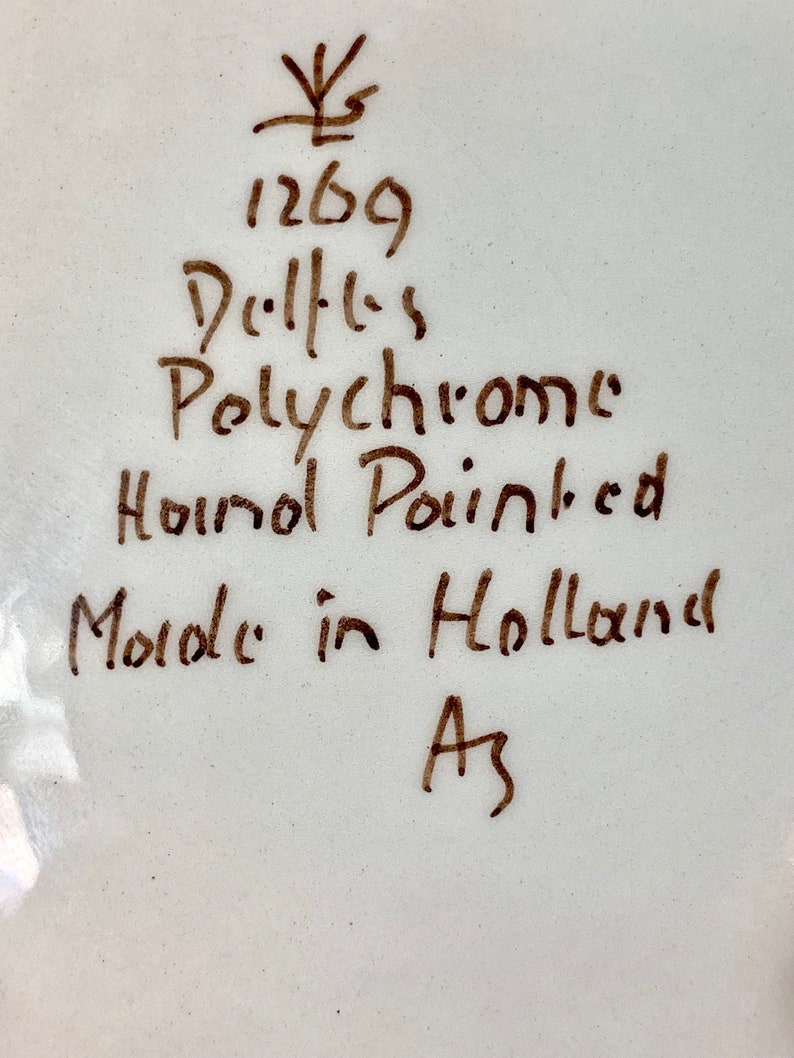 1269
Delfts
Polychrome
Hand Painted
Made in Holland